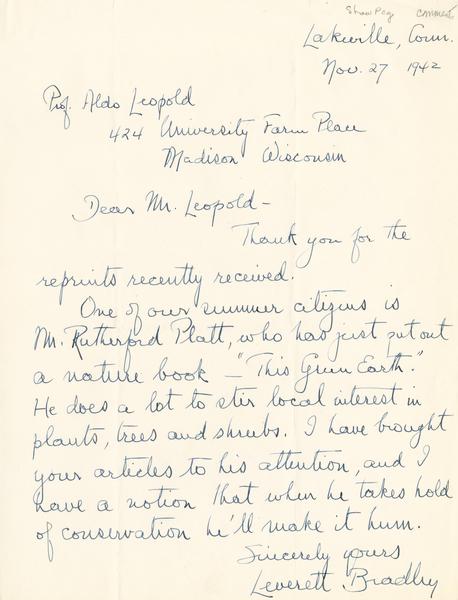 Shaw Pog comment
Lakeville, Conn.
Nov. 27 1942
Prof. Aldo Leopold
424 University Farm Place
Madison Wisconsin
Dear Mr. Leopold -
Thank you for the
reprints recently received.
One of our summer citizens is
Mr. Rutherford Platt, who has just put out
a nature book - "This Green Earth."
He does a lot to stir local interest in
plants, trees and shrubs. I have brought
your articles to his attention, and I
have a notion that when he takes hold
of conservation he'll make it hum.
Sincerely yours
Leverett Bradley